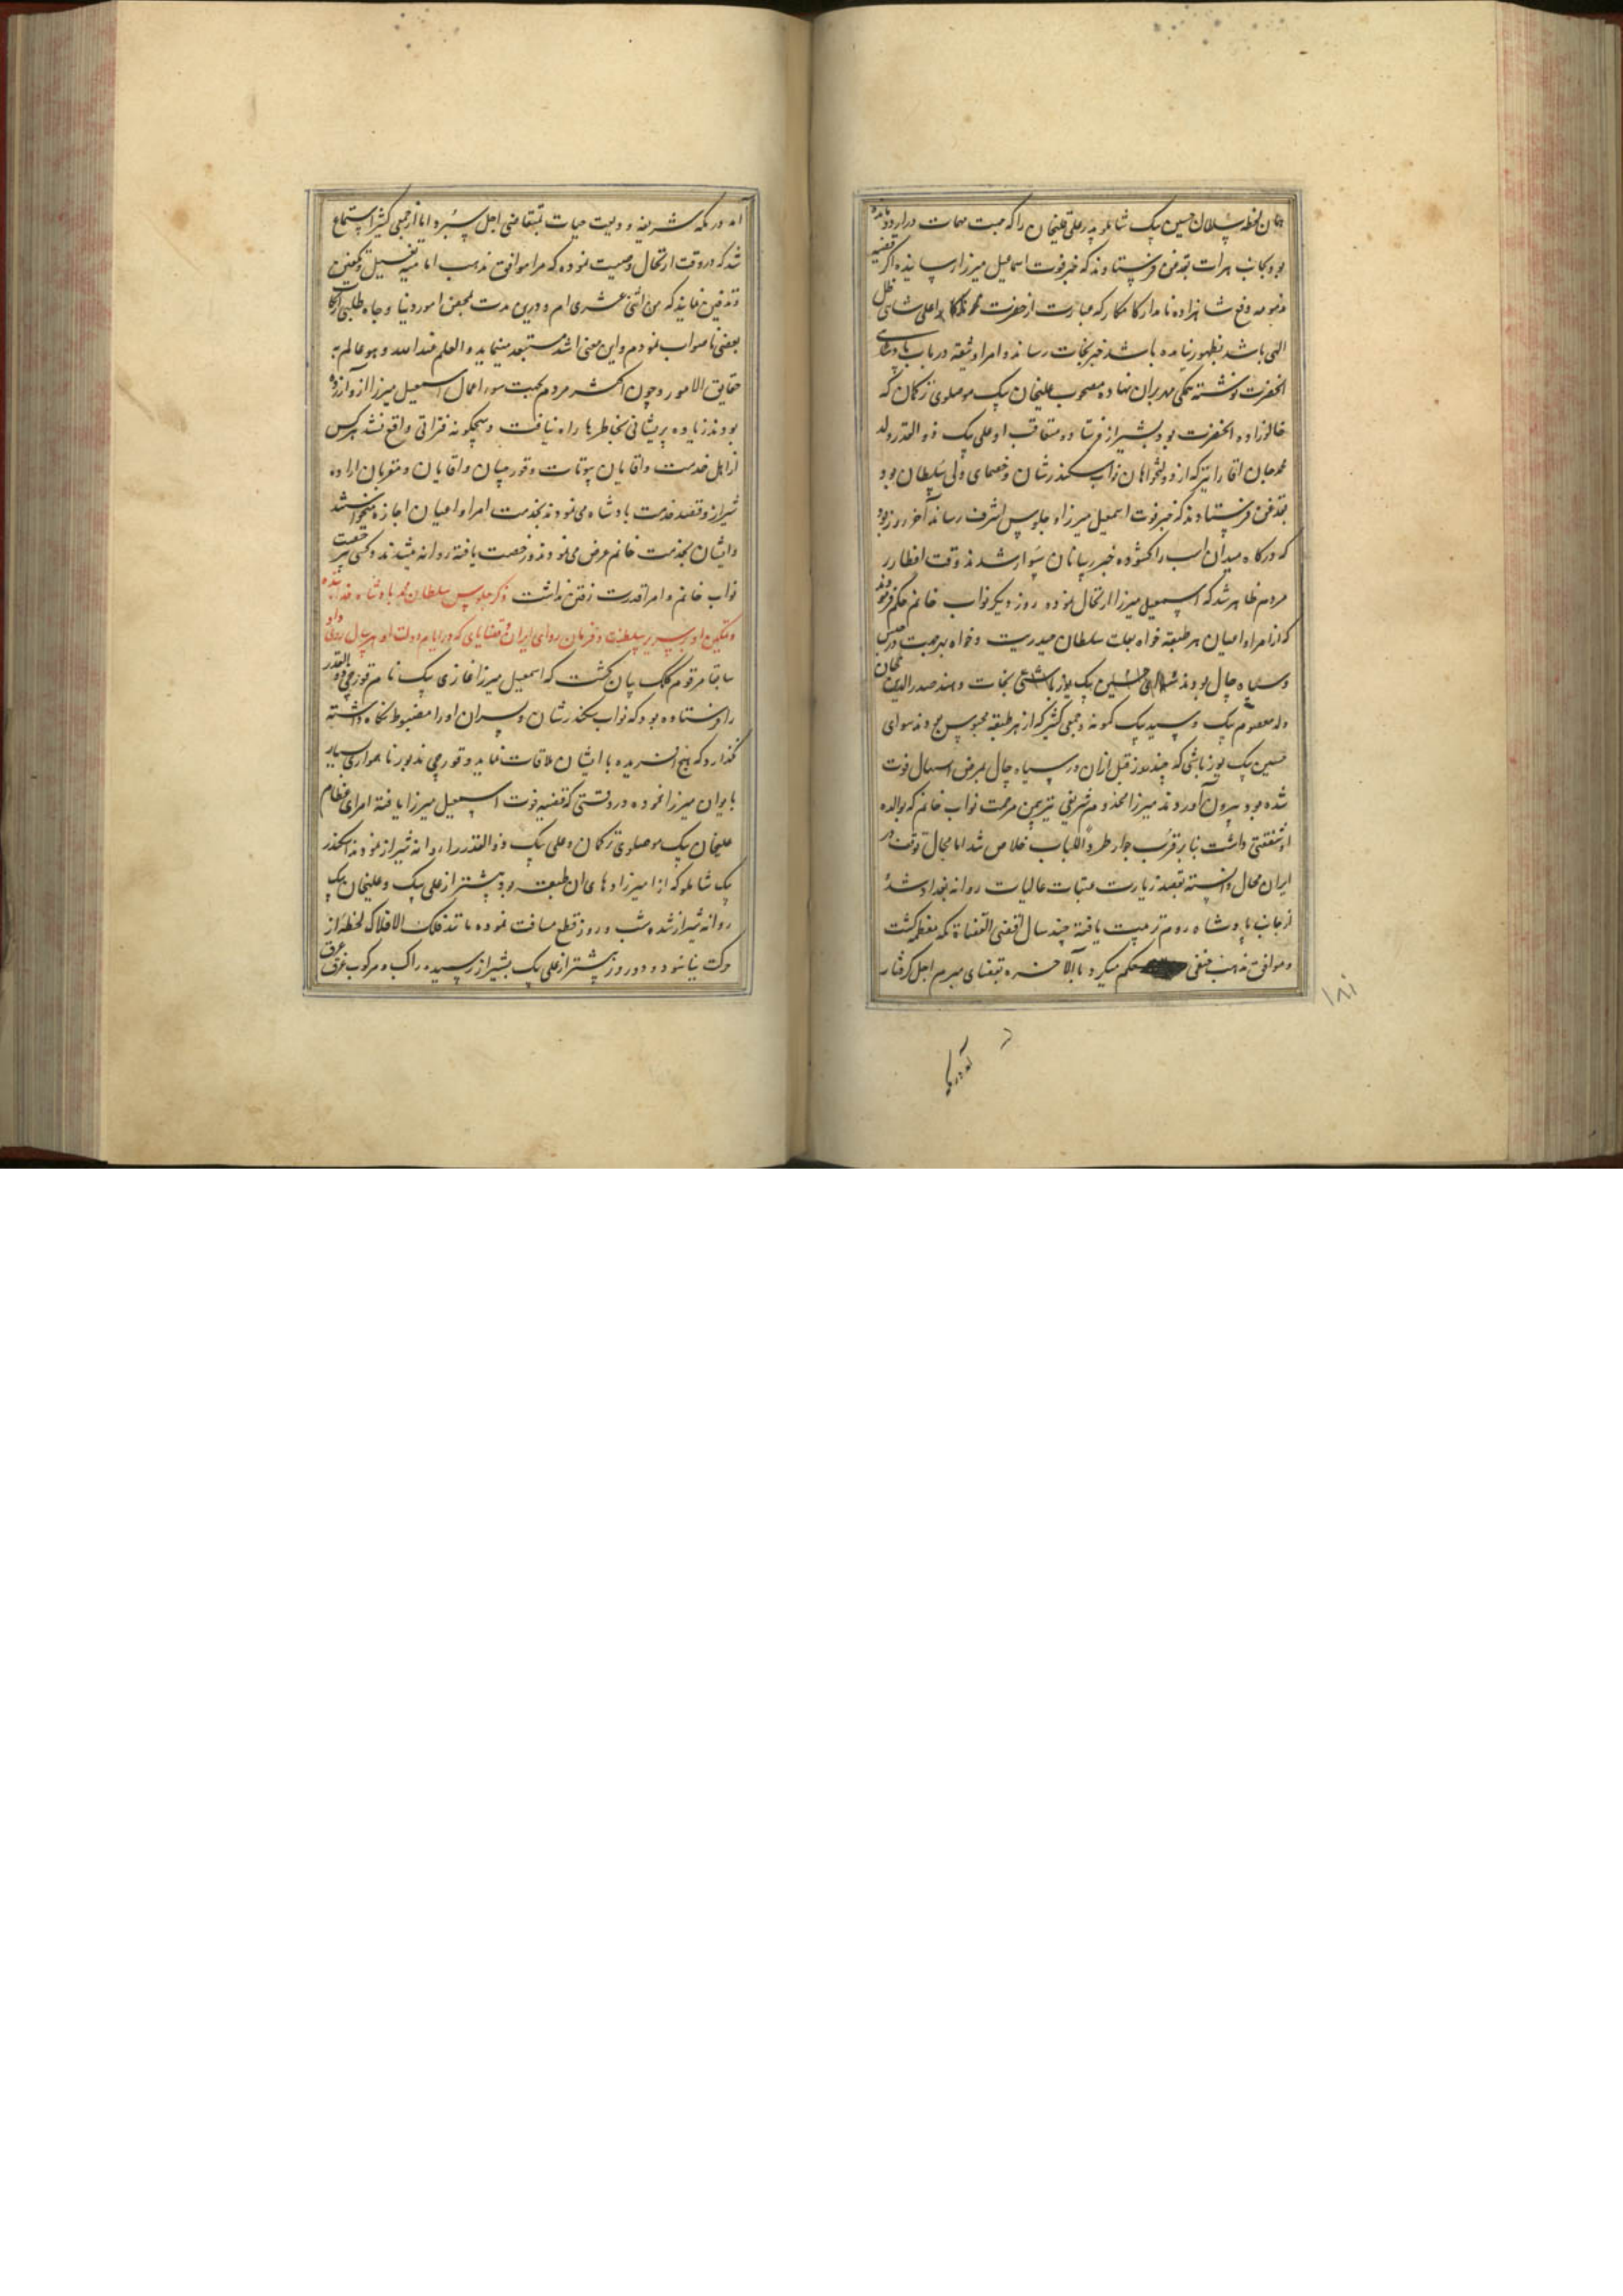 همان لحظه سلطان حسین بیک شاملو پدر علیقلیخان را که جهت مهمات در اردو مانده
بود بجانب هرات بقدغن فرستادند که خبر فوت اسماعیل میرزا رسانیده اگر قضیه
دفع شاهزاده نامدار کامکار که عبارت از حضرت اعلی شاهی ظل
الهی باشد بظهور نیامده باشد خبر نجات رساند و امرا وثیقه در باب پادشاهی
آنحضرت نوشته همگی مهر بران نهاده مصحوب علیخان بیک موصلوی ترکمان که
خالوزاده آنحضرت بود بشیراز فرستاده متعاقب او علی بیک ذوالقدر ولد
محمد جان اقا را نیز که از دولتخواهان نواب سکندرشان و خصمای ولی سلطان بود
بقدغن فرستادند که خبر فوت اسمعیل میرزا و جلوس اشرف رساند آخر روز بود
که درگاه میدان اسب را گشوده خبر رسانان سوار شدند وقت افطار بر
مردم ظاهر شد که اسمعیل میرزا ارتحال نموده روز دیگر نواب خانم حکم فرمودند
که از امرا و اعیان هر طبقه خواه بعلت سلطان حیدریت و خواه بهر جهت در حبس
و سیاه چال بودند حسین بیک یوزباشی نجات دهند صدرالدین خان
ولد معصوم بیک و سید بیک کمونه و جمعی کثیر که از هر طبقه محبوس بودند سوای
حسین بیک یوزباشی که چند روز قبل ازان در سیاه چال بمرض اسهال فوت
شده بود بیرون آوردند میرزا مخدوم شریفی نیز بیمن مرحمت نواب خانم که بوالده
او شفقتی داشت بنابر قرب جوار خلاص شد اما مجال توقف در
ایران محال دانسته بقصد زیارت عتبات عالیات روانه بغداد شد و
از جانب پادشاه روم تربیت یافته چند سال اقضی القضاة مکه معظمه گشت
و موافق مذهب حنفی حکم میکرد تا بالاخره بمقتضای مبرم اجل گرفتار
۱۸۱
آمد در مکه شریفه ودیعت حیات بمتقاضی اجل سپرد اما از جمعی کثیر استماع
شد که در وقت ارتحال وصیت نموده که مرا موافق مذهب امامیه تغسیل و تکفین
و تدفین نمایند که من اثنی عشری ام و درین مدت بمحض امور دنیا و جاه طلبی ارتکاب
بعضی ناصواب نمودم و این معنی اشد مستبعد مینماید والعلم عندالله و هو عالم به
حقایق الامور و چون اکثر مردم بجهت سوء اعمال اسمعیل میرزا ازو آزرده
بودند زیاده پریشانی بخاطرها راه نیافت و هیچگونه فتراتی واقع نشد هر کس
از اهل خدمت و اقایان بیوتات و قورچیان و اقایان و مقربان اراده
شیراز و قصد خدمت پادشاه می نمودند بخدمت امرا و اعیان اجازه میخواستند
و ایشان بخدمت خانم عرض می نمودند و رخصت یافته روانه میشدند و کسی بیرخصت
نواب خانم و امرا قدرت رفتن نداشت ذکر جلوس سلطان محمد پادشاه خدابنده
و تمکین او بر سریر سلطنت و فرمان روای ایران و قضایای که در ایام دولت او هر سال روی داد
سابقا مرقوم کلک بیان گشت که اسمعیل میرزا غازی بیک نام قورچی ذوالقدر
را فرستاده بود که نواب سکندرشان و پسران او را مضبوط نگاه داشته
نگذارد که هیچ آفریده با ایشان ملاقات نماید و قورچی مذبور ناهمواری بسیار
با نوابان میرزا نموده در وقتی که قضیه فوت اسمعیل میرزا یافته امرای عظام
علیخان بیک موصلوی ترکمان و علی بیک ذوالقدر را روانه شیراز نمودند اسکندر
بیک شاملو که از امیرزادهای ان طبقه بود پیشتر از علی بیک و علیخان بیک
روانه شیراز شده شب و روز قطع مسافت نموده مانند فلک الافلاک لحظه از
حرکت نیاسود و دو روز پیشتر از علی بیک بشیراز رسیده راکب و مرکوب غرق عرق